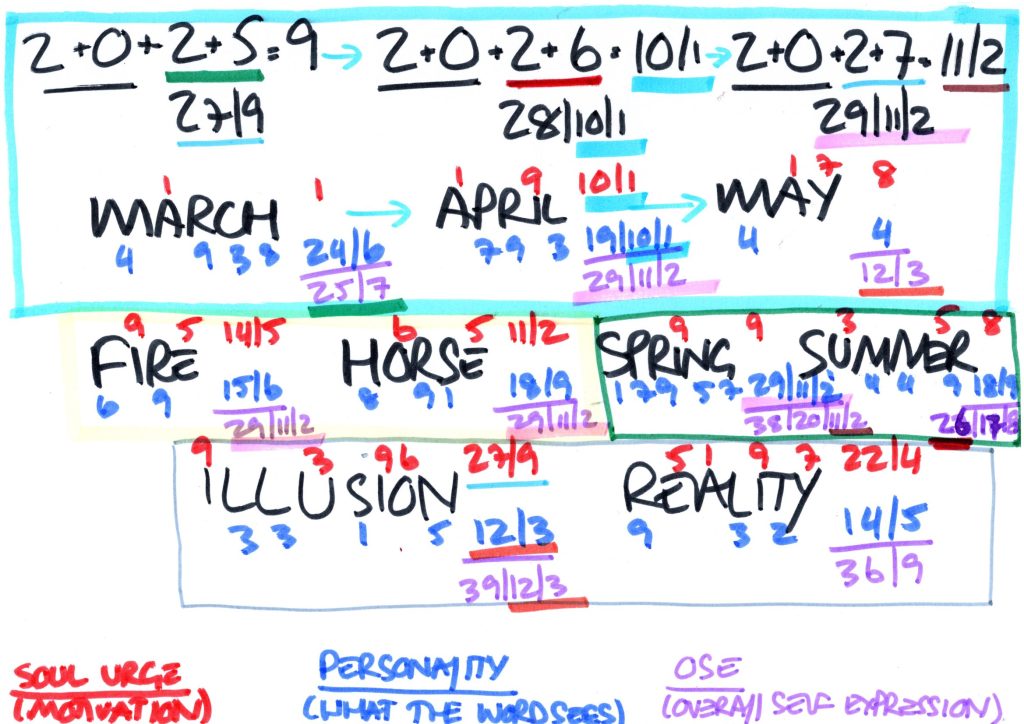 2+0+2+5=9 → 2+0+2+6=10/1 → 2+0+2+7=11/2
27/9 28/10/1 29/11/2
1 1 1 9 10/1 1 7 8
MARCH → APRIL → MAY
4 9 3 8 24/6 7 9 3 19/10/1 4 4
25/7 29/11/2 12/3
9 5 14/5 6 5 11/2 9 9 3 5 8
FIRE HORSE SPRING SUMMER
6 9 15/6 8 9 1 18/9 1 7 9 5 7 29/11/2 1 4 4 9 18/9
29/11/2 29/11/2 38/20/11/2 26/17/8
9 3 9 6 27/9 5 1 9 7 22/4
ILLUSION REALITY
3 3 1 5 12/3 9 3 2 14/5
39/12/3 36/9
SOUL URGE PERSONALITY OSE
(MOTIVATION) (WHAT THE WORD SEES) (OVERALL SELF EXPRESSION)